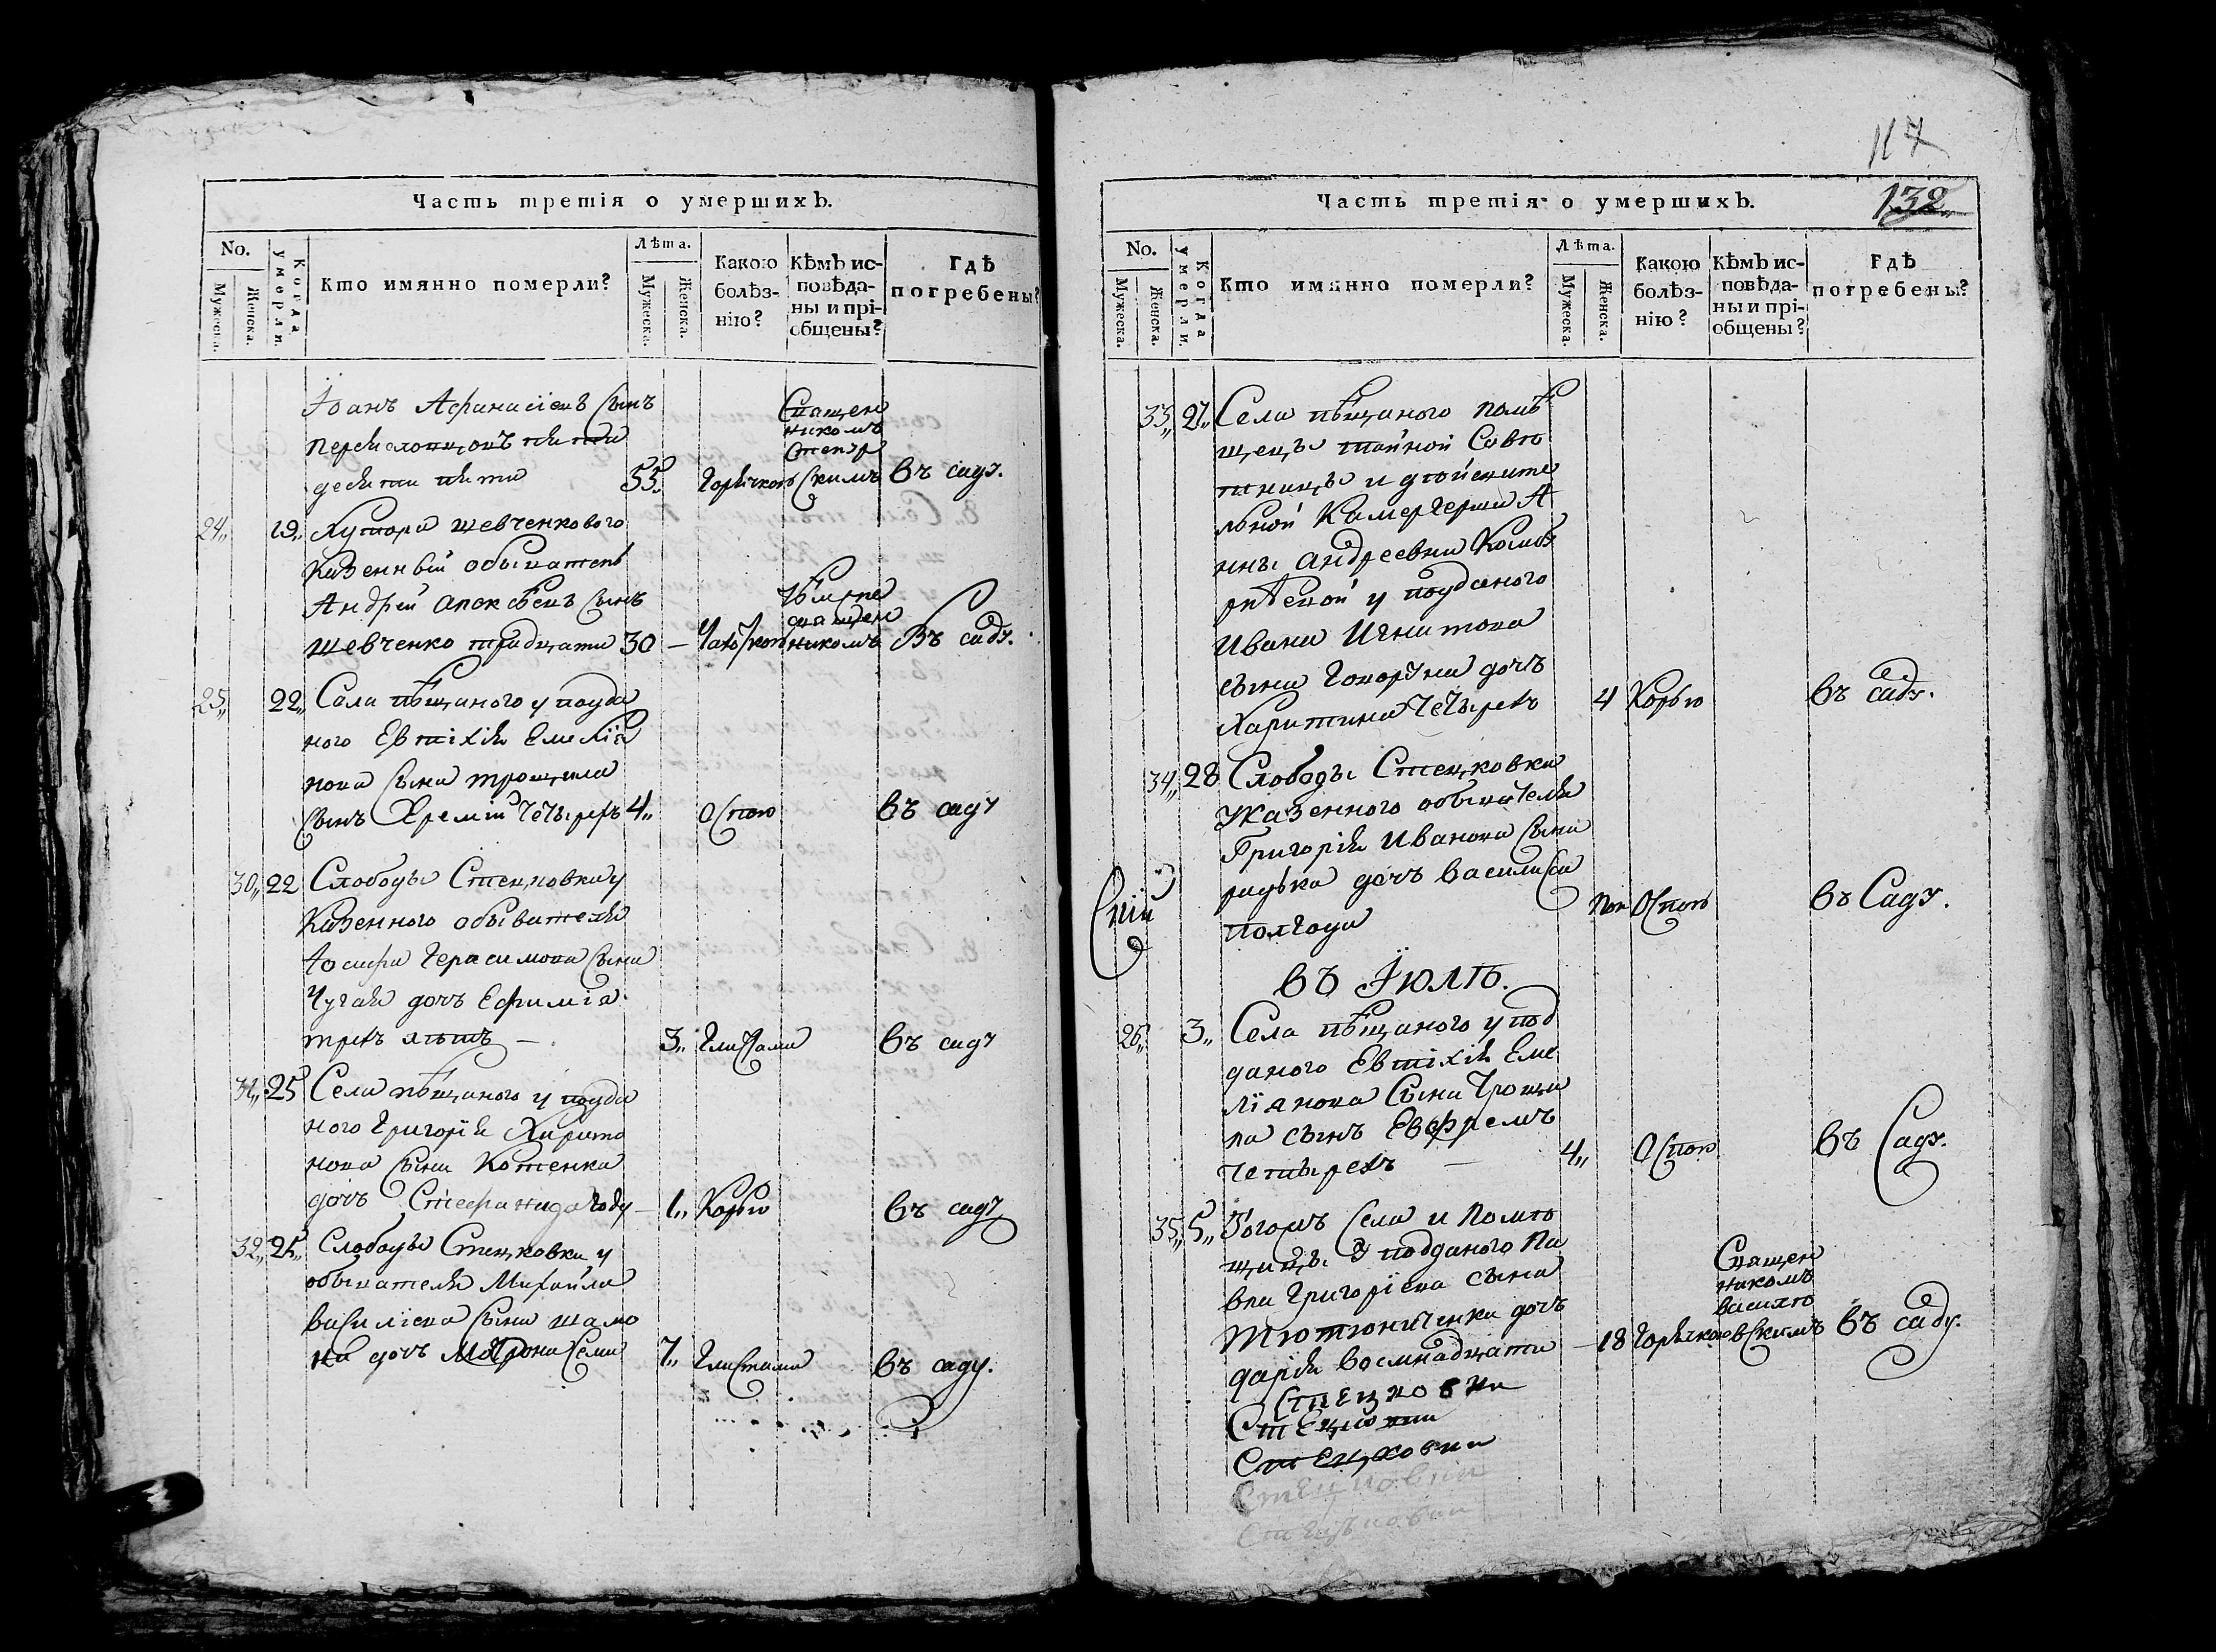 Часть третія о умершихъ.
No.
Мужеска.
Женска.
Когда умерли.
Кто имянно померли?
Лѣта.
Мужеска.
Женска.
Какою болѣз-
нію?
Кѣмъ ис-
повѣда-
ны и прі-
общены?
Гдѣ
погребены?
Іоанъ Афанасіевъ сынъ
десяти пяти 55 Горячкою въ саду.
24,, 19,, Хутора шевченкового
Казенный обыватель
Андрей Алексѣевъ сынъ
шевченко тридцати 30 — никомъ Въ саду.
25,, 22,, Села пѣщаного у подда
ного Евтіхія Емелія
нова сына трощила
сынъ Еремій четырехъ 4,, Оспою въ саду
30,, 22 Слободы Стецковки у
Казенного обывателя
Іосифа Герасимова сына
Чугая дочь Ефимія
трехъ лѣтъ — 3,, Глистами въ саду
31,, 25 Села пѣщаного у подда
ного Григорія Харито
нова сына Котенка
дочь Стефанида году — 1,, Корью въ саду
32,, 25,, Слободы Стецковки у
обывателя Михайла
василіева сына шамо
дочь Матрона семи 7,, Глистами въ саду.
117
Часть третія о умершихъ.
132
No.
Мужеска.
Женска.
Когда умерли.
Кто имянно померли?
Лѣта.
Мужеска.
Женска.
Какою
болѣз-
нію?
Кѣмъ ис-
повѣда-
ны и прі-
общены?
Гдѣ
погребены?
33,, 27,, Села пѣщаного помѣ
щецы тайной Совѣ
тницы и дѣйсвите
льной Камергерши А
нны андреевны
у подданого
Ивана Игнатова
сына Говоруна дочь
Харитина четырехъ 4 Корью въ саду.
34,, 28 Слободы Стецковки
у Казенного обывателя
Григорія Иванова сына
радька дочь василиса
полгода пол Оспою въ Саду.
въ Іюлѣ.
26,, 3,, Села пѣщаного у под
даного Евтіхія Еме
ліянова сына Троши
ла сынъ Евфремъ
четырехъ — 4,, Оспою въ Саду.
35,, 5,, Тогожъ села и помѣ
щицы у подданого Па
вла Григоріева сына
Тютюниченка дочь
дарія восмнадцати — 18 Горячкою Священ
никомъ
василю
евскимъ въ саду.
Стецковки
Стецковки
Стецковки
Стецковки
Стецковки